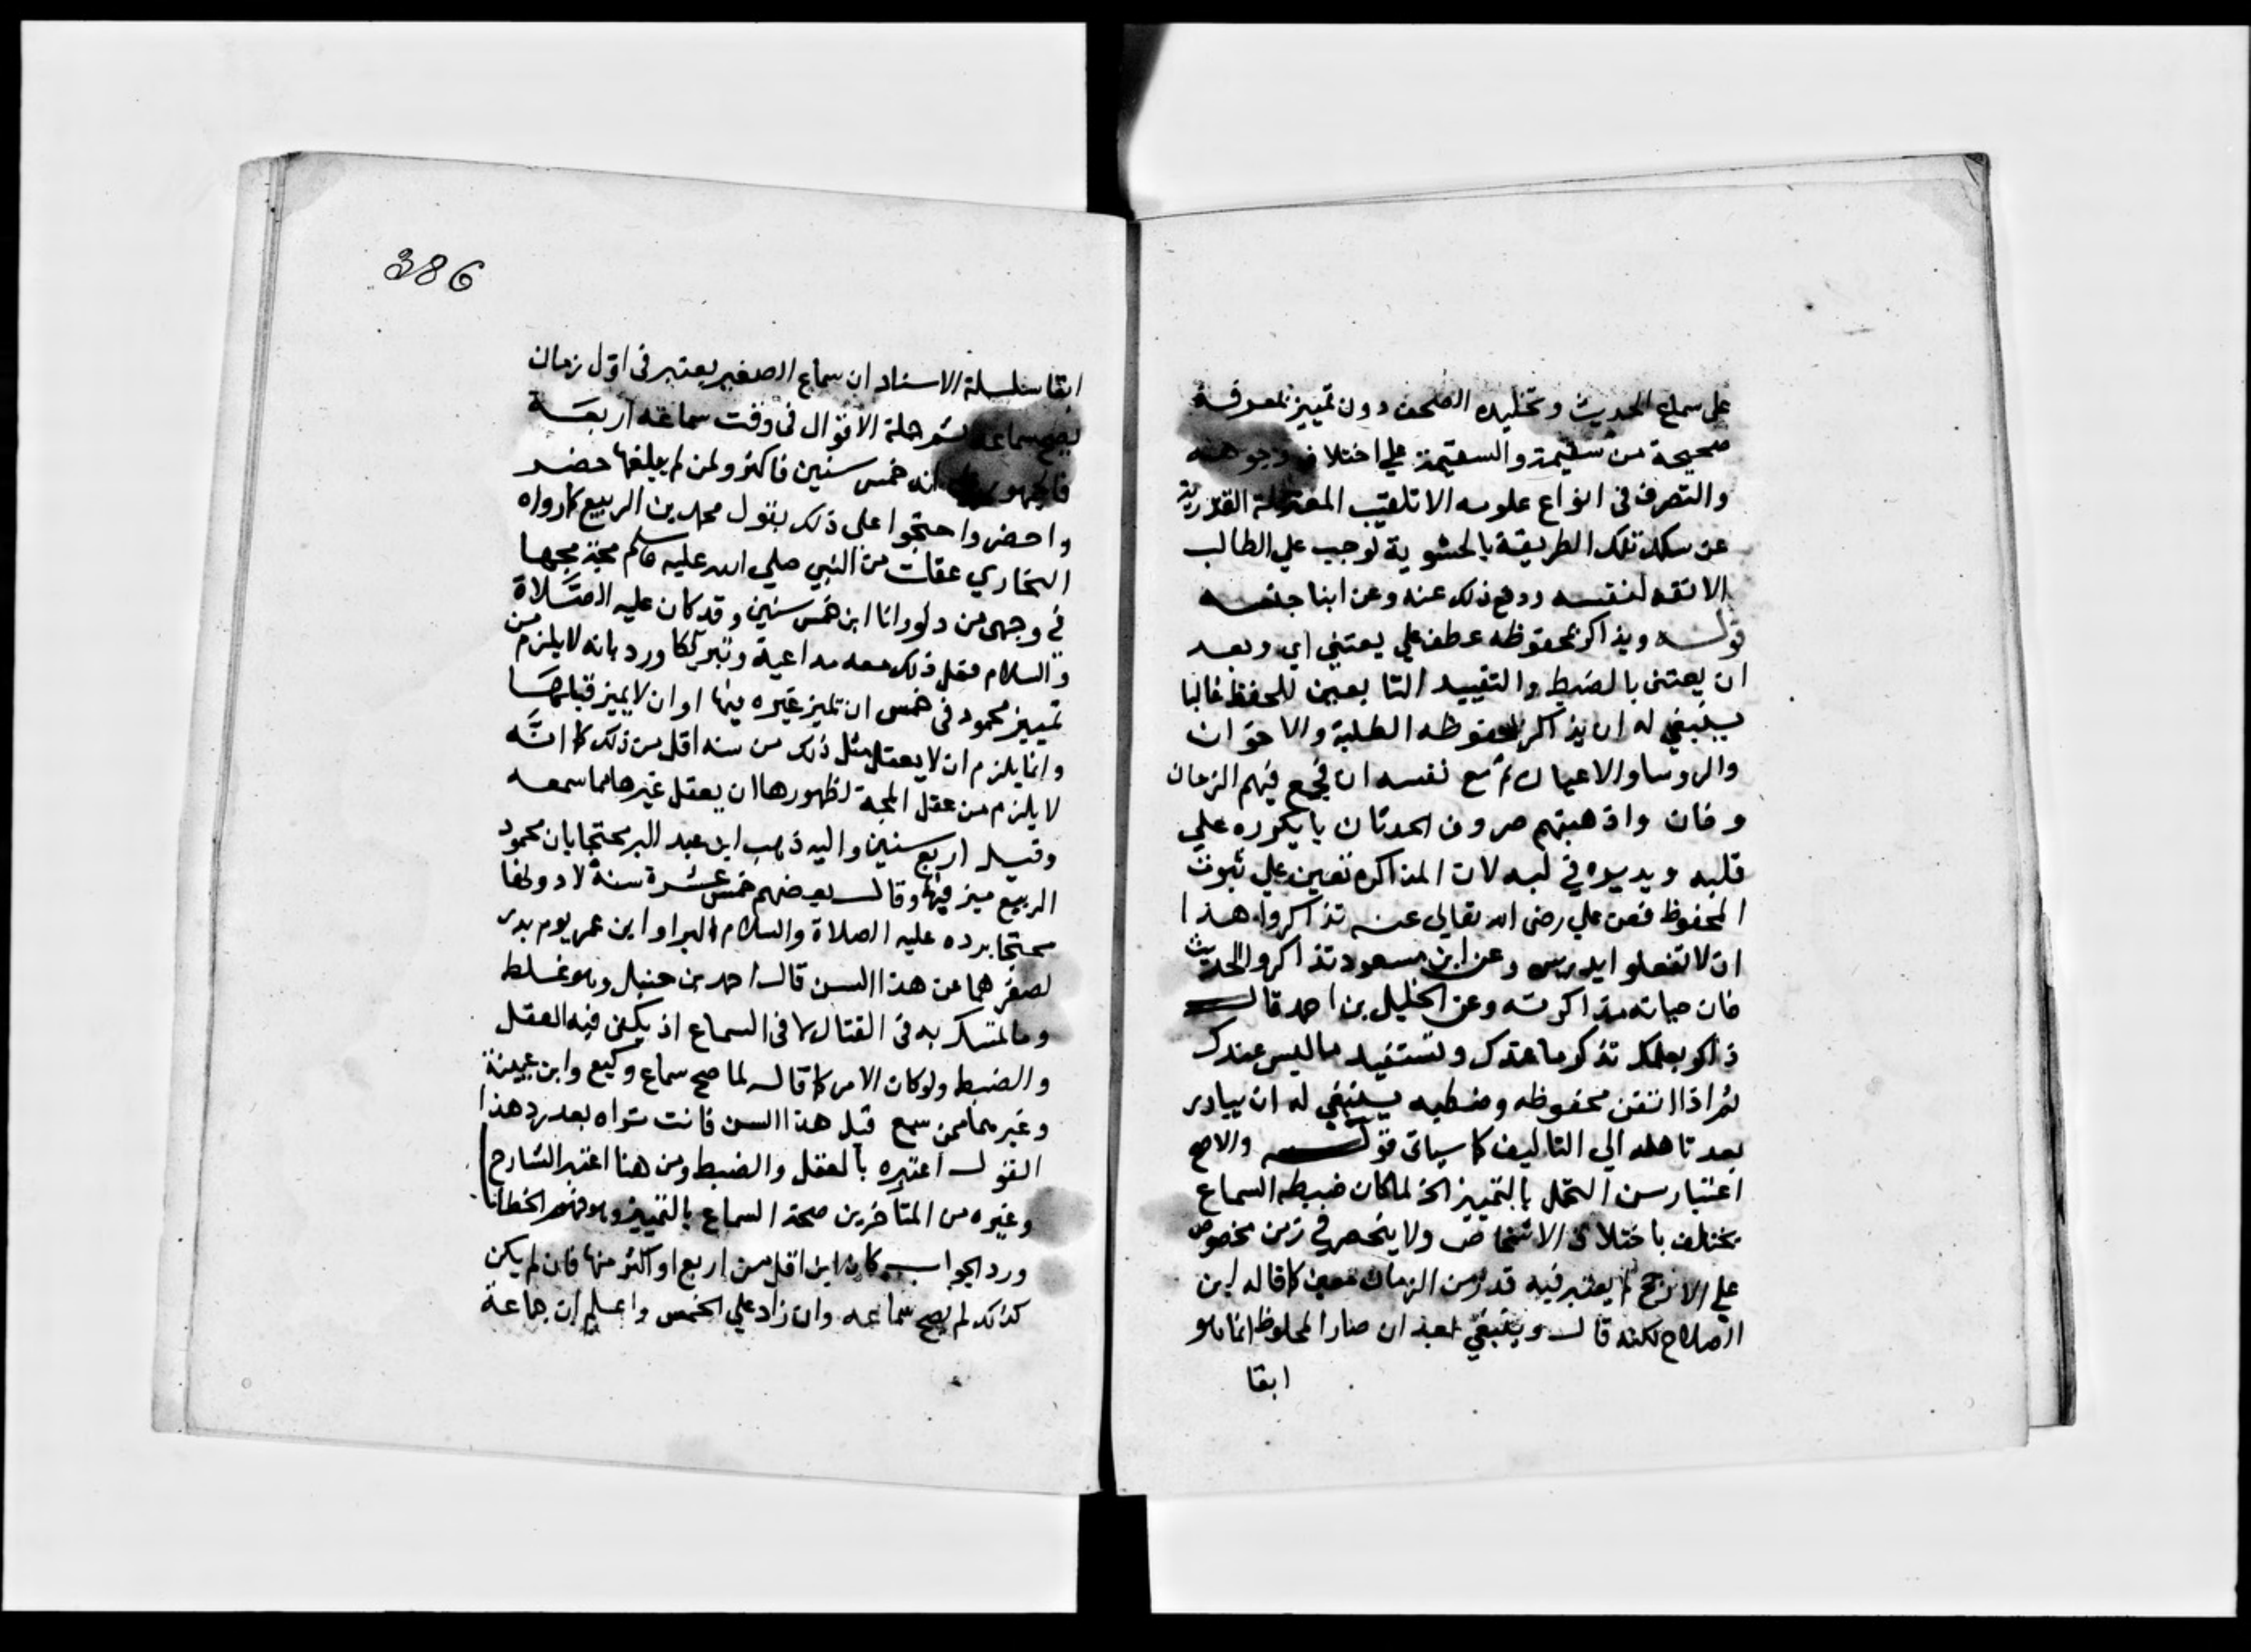 علي سماع الحديث وتخليده الصحف دون تمييز بمعرفة
صحيحة من سقيمة والسقيمة علي اختلاف وجوهه
والتصرف في انواع علومه الا تلقيب المعتزلة القدرية
عن سلك تلك الطريقة بالحشوية لوجب علي الطالب
الانفة لنفسه ودفع ذلك عنه وعن ابنا جنسه
قوله ويذاكر بمحفوظه عطف علي يعتني اي وبعد
ان يعتني بالضبط والتقييد التابعين للحفظ غالبا
ينبغي له ان يذاكر بمحفوظه الطلبة والاخوان
والروسا والاعيان ثم مع نفسه ان فجع فيهم الزمان
وفان واذهبتهم صروف الحدثان بايكرره علي
قلبه ويديره في لبه لان المذاكرة تعين علي ثبوت
المحفوظ فعن علي رضي الله تعالي عنه تذاكروا هذا
ان لا تفعلوا يدرس وعن ابن مسعود تذاكروا الحديث
فان حياته مذاكرته وعن الخليل بن احمد قال
ذاكر بعلمك تذكر ما عندك وتستفيد ما ليس عندك
ثم اذا اتقن محفوظه وضبطه ينبغي له ان يبادر
بعد تاهله الي التاليف كما سياتي قوله والاصح
اعتبار سن التحمل بالتمييز الخ لما كان ضبطه السماع
يختلف باختلاف الاشخاص ولا ينحصر في زمن مخصوص
علي الارجح لم يعتبر فيه قدر من الزمان معين كما قاله ابن
الصلاح لكنه قال وينبغي بعد ان صار الملحوظ انما هو
ابقا
386
ابقا سلسلة الاسناد ان سماع الصغير يعتبر في اول زمان
يصح سماعه ثم جملة الاقوال في وقت سماعه اربعة
فالجمهور علي انه خمس سنين فاكثر ولمن لم يبلغها حضر
واحضر واحتجوا علي ذلك بقول محمد بن الربيع كما رواه
البخاري عقلت من النبي صلي الله عليه وسلم مجة مجها
في وجهي من دلو وانا ابن خمس سنين وقد كان عليه الصلاة
والسلام فعل ذلك معه مداعبة وتبريكا ورد بانه لا يلزم من
تمييز محمود في خمس ان تميز غيره فيها او ان لا يميز قبلها
وانما يلزم ان لا يعقل مثل ذلك من سنه اقل من ذلك كما انه
لا يلزم من عقل المجة لظهورها ان يعقل غيرها مما سمعه
وقيل اربع سنين واليه ذهب ابن عبد البر محتجا بان محمود
الربيع ميز فيها وقال بعضهم خمس عشرة سنة لا دونها
محتجا برده عليه الصلاة والسلام البرا وابن عمر يوم بدر
لصغرهما عن هذا السن قال احمد بن حنبل وهو غلط
وما تمسك به في القتال لا في السماع اذ يكفي فيه العقل
والضبط ولو كان الامر كما قال لما صح سماع وكيع وابن عيينة
وغيرهما ممن سمع قبل هذا السن فانت تراه بعد رد هذا
القول اعتبره بالعقل والضبط ومن هنا اعتبر الشارح
وغيره من المتاخرين صحة السماع بالتمييز وهو فهم الخطاب
ورد الجواب كان ابن اقل من اربع او اكثر منها فان لم يكن
كذلك لم يصح سماعه وان زاد علي الخمس واعلم ان جماعة